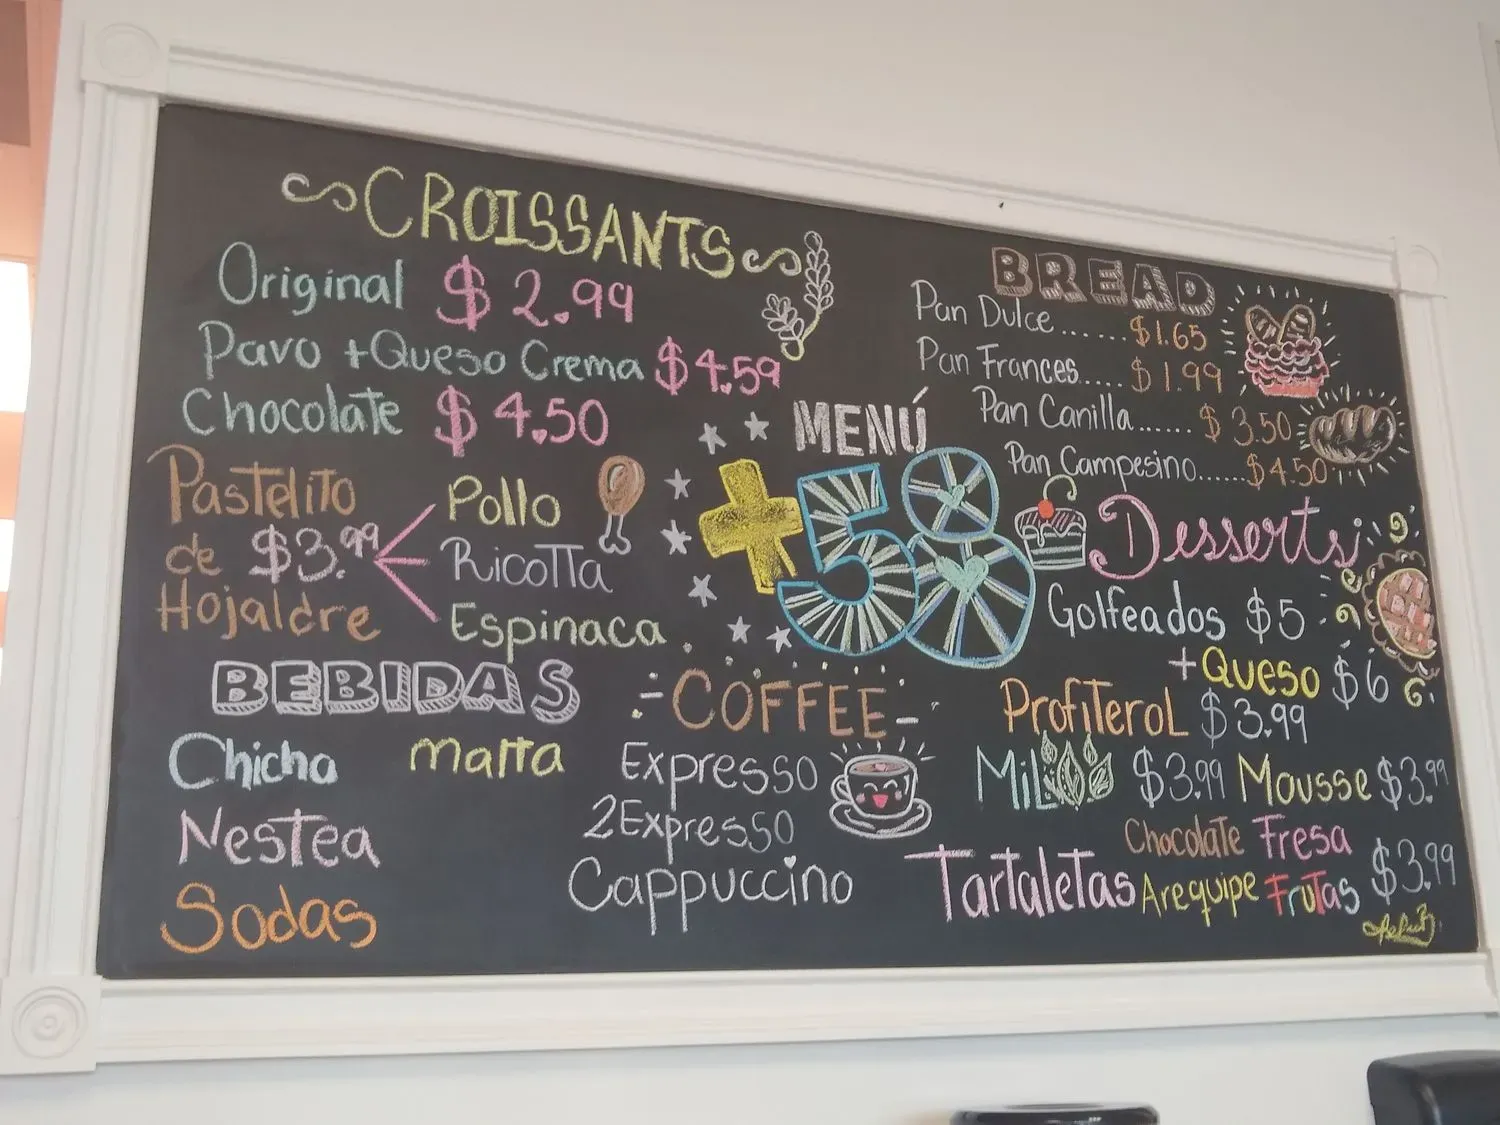 CROISSANTS
Original $2.99
Pavo + Queso Crema $4.59
Chocolate $4.50
Pastelito
de $3.99
Hojaldre
Pollo
Ricotta
Espinaca
BEBIDAS
Chicha Malta
Nestea
Sodas
MENÚ
+58
COFFEE
Expresso
2Expresso
Cappuccino
BREAD
Pan Dulce...... $1.65
Pan Frances..... $1.99
Pan Canilla...... $3.50
Pan Campesino...... $4.50
Desserts
Golfeados $5
+Queso $6
Profiterol $3.99
Mil $3.99 Mousse $3.99
Chocolate Fresa
Tartaletas Arequipe Frutas $3.99